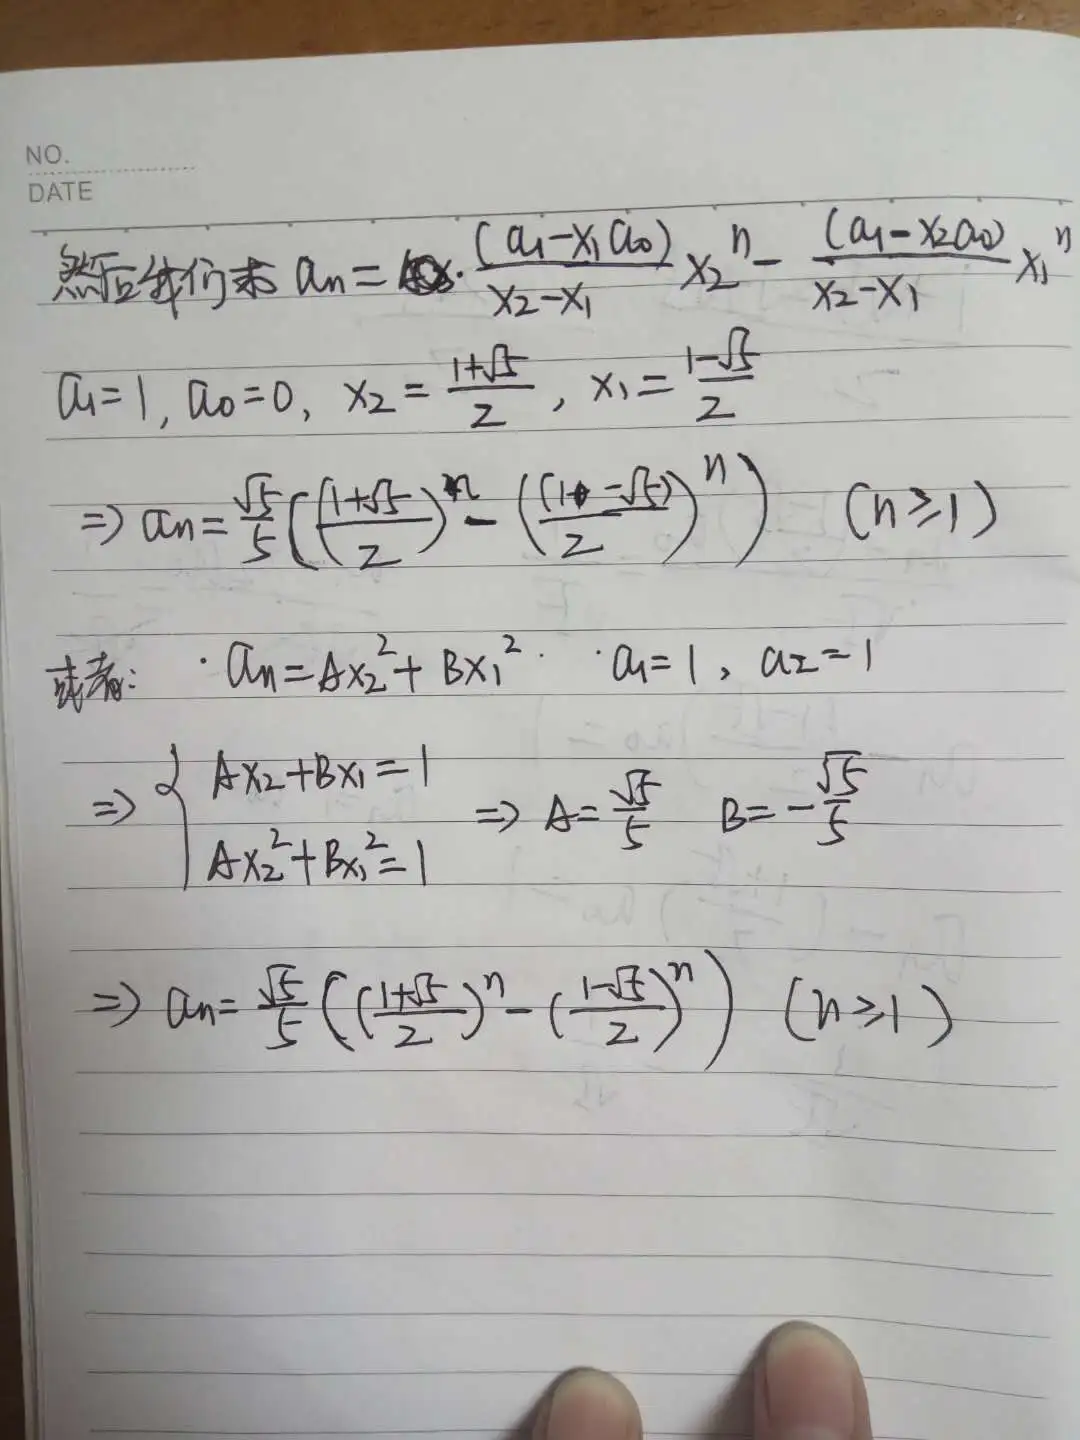 NO.
DATE
然后我们求 a_n = \frac{(a_1-x_1a_0)}{x_2-x_1} x_2^n - \frac{(a_1-x_2a_0)}{x_2-x_1} x_1^n
a_1=1, a_0=0, x_2=\frac{1+\sqrt{5}}{2}, x_1=\frac{1-\sqrt{5}}{2}
⇒ a_n=\frac{\sqrt{5}}{5}((\frac{1+\sqrt{5}}{2})^n-(\frac{(1-\sqrt{5})}{2})^n) (n≥1)
或者: a_n=Ax_2^2+Bx_1^2 a_1=1, a_2=1
⇒ { Ax_2+Bx_1=1
Ax_2^2+Bx_1^2=1 ⇒ A=\frac{\sqrt{5}}{5} B=-\frac{\sqrt{5}}{5}
⇒ a_n=\frac{\sqrt{5}}{5}((\frac{1+\sqrt{5}}{2})^n-(\frac{1-\sqrt{5}}{2})^n) (n≥1)